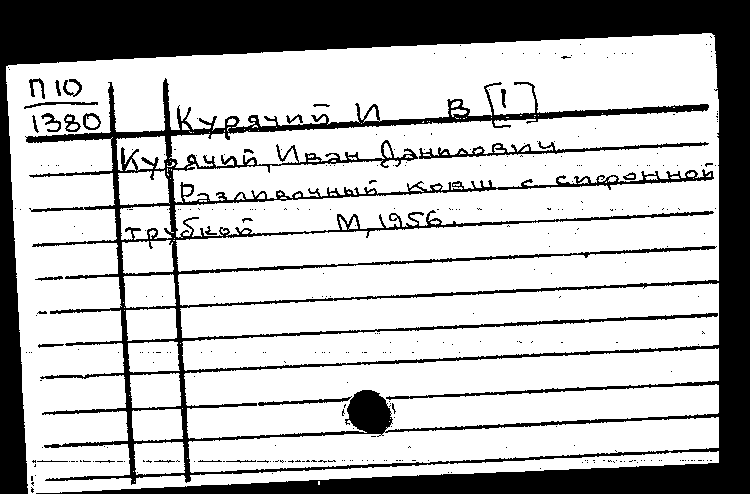 П 10
1380
Курячий И В [1]
Курячий, Иван Данилович
Разливочный ковш с сифонной
трубкой М, 1956.